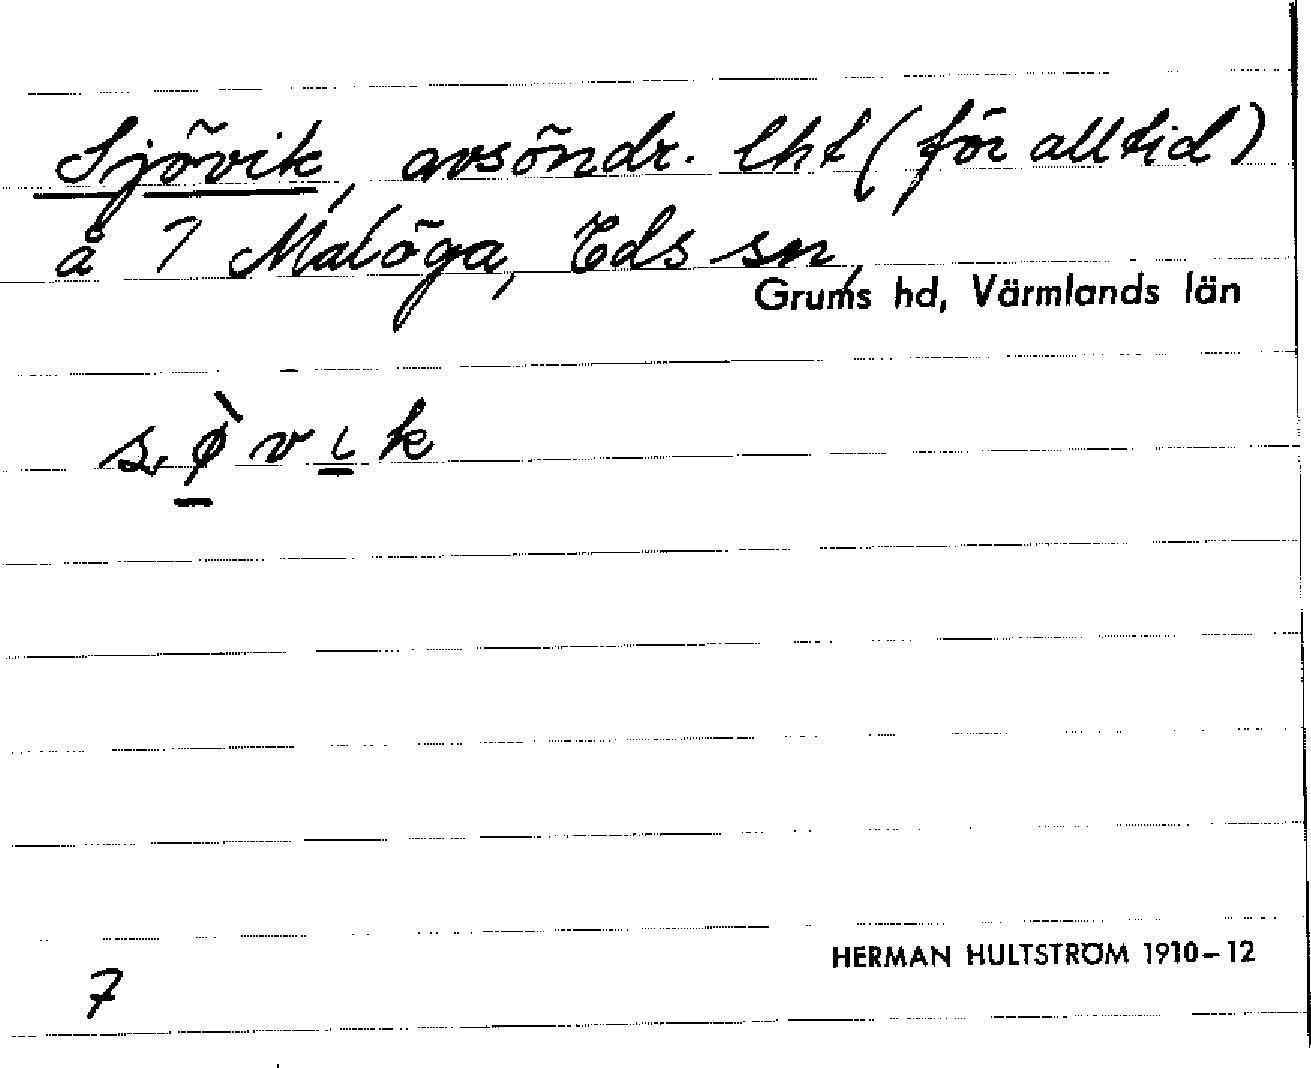 Sjövik, avsöndr. lht (för alltid)
å 7 Malöga, Eds sn,
Grums hd, Värmlands län
s. ø̀ v ɩ k
HERMAN HULTSTRÖM 1910–12
7